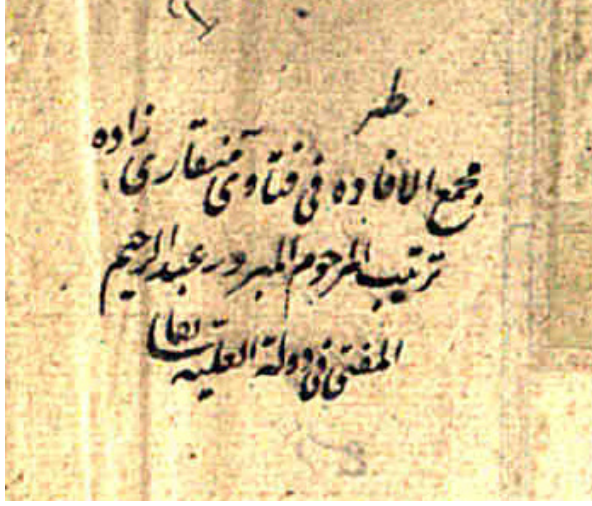 مجمع الافاده فى فتاوى منقارى زاده
ترتيب المرحوم المبرور عبدالرحيم
المفتى فى دولة العليه